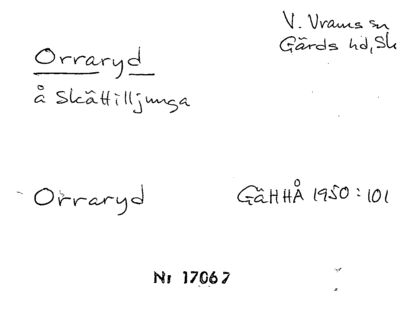 V. Vrams sn
Gärds hd, Sk
Orraryd
å Skättilljunga
Orraryd
GäHHÅ 1950:101
Nr 17067